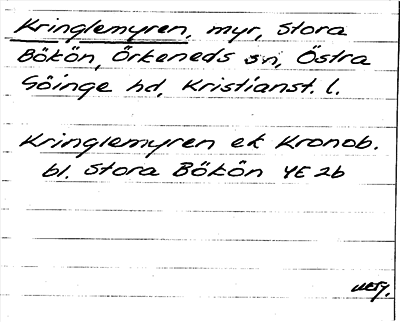 Kringlemyren, myr, Stora
Bökön, Örkeneds sn, Östra
Göinge hd, Kristianst. l.
Kringlemyren ek Kronob.
bl. Stora Bökön 4E 2b